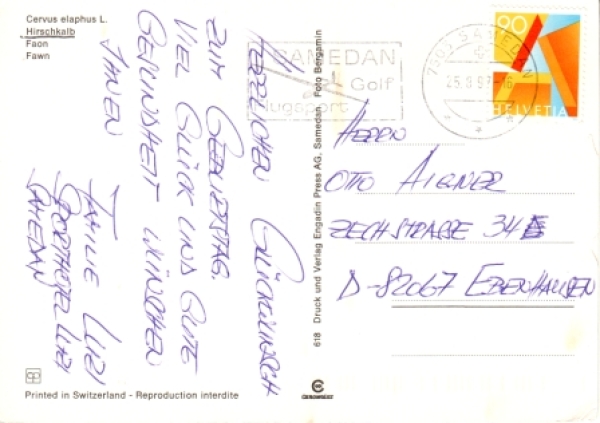 Cervus elaphus L.
Hirschkalb
Faon
Fawn
HERZLICHEN GLÜCKWUNSCH
ZUM GEBURTSTAG.
VIEL GLÜCK UND GUTE
GESUNDHEIT WÜNSCHEN
IHNEN
FAMILIE
SPORTHOTEL
SAMEDAN
Printed in Switzerland - Reproduction interdite
618 Druck und Verlag Engadin Press AG, Samedan. Foto Bergamin
SAMEDAN
Golf
Flugsport
7503 SAMEDAN
90
HELVETIA
HERRN
OTTO AIGNER
ZECHSTRASSE 34
D-82067 EBENHAUSEN